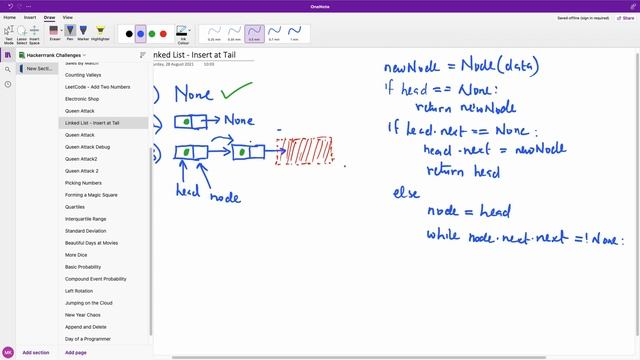 OneNote
Saved offline (sign in required)
Home Insert Draw View
Text Mode
Lasso Select
Insert Space
Eraser
Pen
Marker
Highlighter
0.25 mm
0.35 mm
0.5 mm
0.7 mm
1 mm
Hackerrank Challenges
New Sectio...
Counting Valleys
LeetCode - Add Two Numbers
Electronic Shop
Queen Attack
Linked List - Insert at Tail
Queen Attack
Queen Attack Debug
Queen Attack2
Queen Attack 2
Picking Numbers
Forming a Magic Square
Quartiles
Interquartile Range
Standard Deviation
Beautiful Days at Movies
More Dice
Basic Probability
Compound Event Probability
Left Rotation
Jumping on the Cloud
New Year Chaos
Append and Delete
Day of a Programmer
MK
Add section
Add page
inked List - Insert at Tail
turday, 28 August 2021 10:03
) None
) None
)
head node
newNode = Node(data)
if head == None:
return newNode
if head.next == None:
head.next = newNode
return head
else
node = head
while node.next.next =! None: